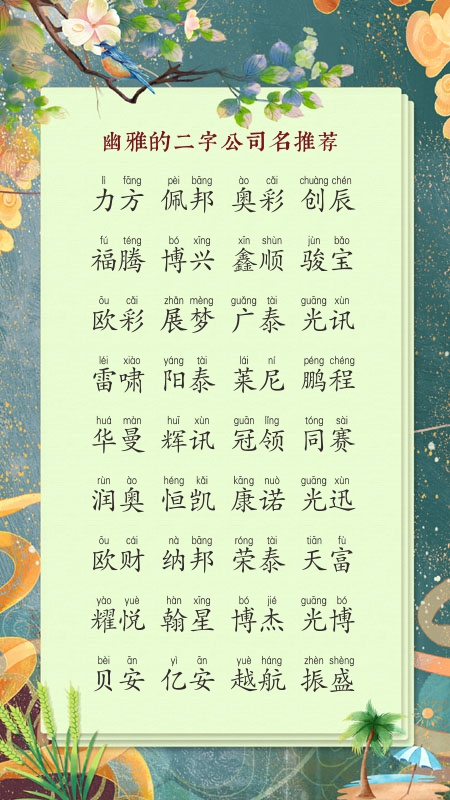 幽雅的二字公司名推荐
lì fāng pèi bāng ào cǎi chuàng chén
力方 佩邦 奥彩 创辰
fú téng bó xīng xīn shùn jùn bǎo
福腾 博兴 鑫顺 骏宝
ōu cǎi zhǎn mèng guǎng tài guāng xùn
欧彩 展梦 广泰 光讯
léi xiào yáng tài lái ní péng chéng
雷啸 阳泰 莱尼 鹏程
huá màn huī xùn guān lǐng tóng sài
华曼 辉讯 冠领 同赛
rùn ào héng kǎi kāng nuò guāng xùn
润奥 恒凯 康诺 光迅
ōu cái nà bāng róng tài tiān fù
欧财 纳邦 荣泰 天富
yào yuè hàn xīng bó jié guāng bó
耀悦 翰星 博杰 光博
bèi ān yì ān yuè háng zhèn shèng
贝安 亿安 越航 振盛